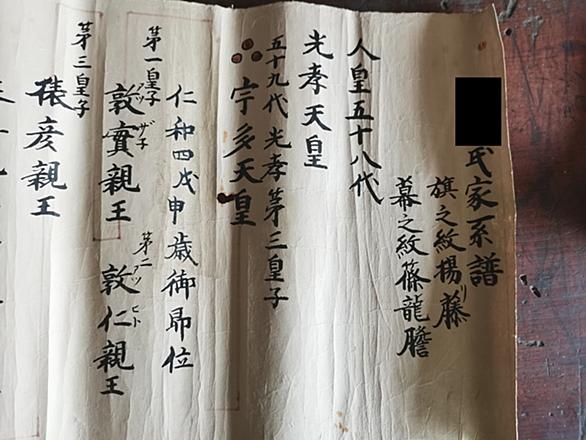 氏家系譜
旗之紋揚リ藤
幕之紋篠龍膽
人皇五十八代
光孝天皇
五十九代 光孝第三皇子
宇多天皇
仁和四戊申歳御即位
第一皇子
敦實親王
アツ ザ子
第二
敦仁親王
アツ ヒト
第三皇子
彦親王